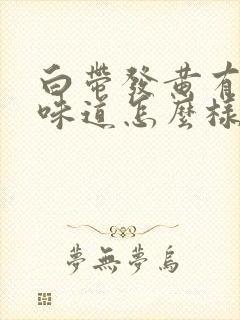 白帶發黄有
味道怎麼樣
夢無夢鳥